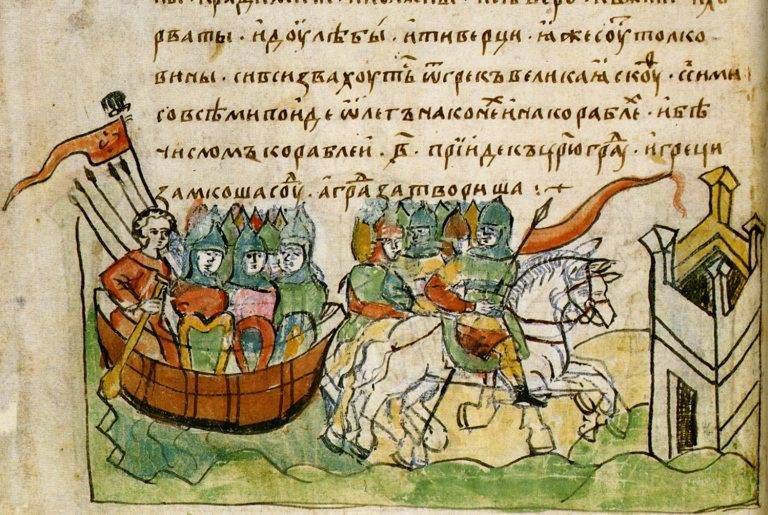 рваты · и доулѣбы · и тиверци · ꙗже соуⷮ толко
вины · си вси звахоутьⷭ ѿ грекъ великаꙗ скоуⷴ · с сими
со всѣми поиде ѡлегъ на конеⷯ и на кораблеⷯ · и бѣ
числомъ кораблеи · в҃ · прїиде къ црⷭ҇ю граⷣу · и греци
замкоша соуⷣ · а граⷣ затвориша : +